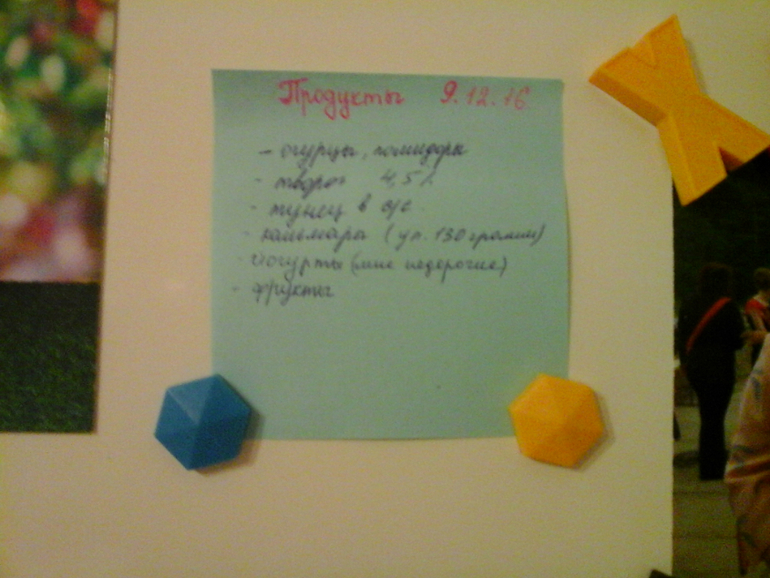 Продукты 9.12.16
- огурцы, помидоры
- творог 4,5%
- тунец в с/с
- кальмара (уп. 130 грамм)
- йогурты (мне недорогие)
- фрукты